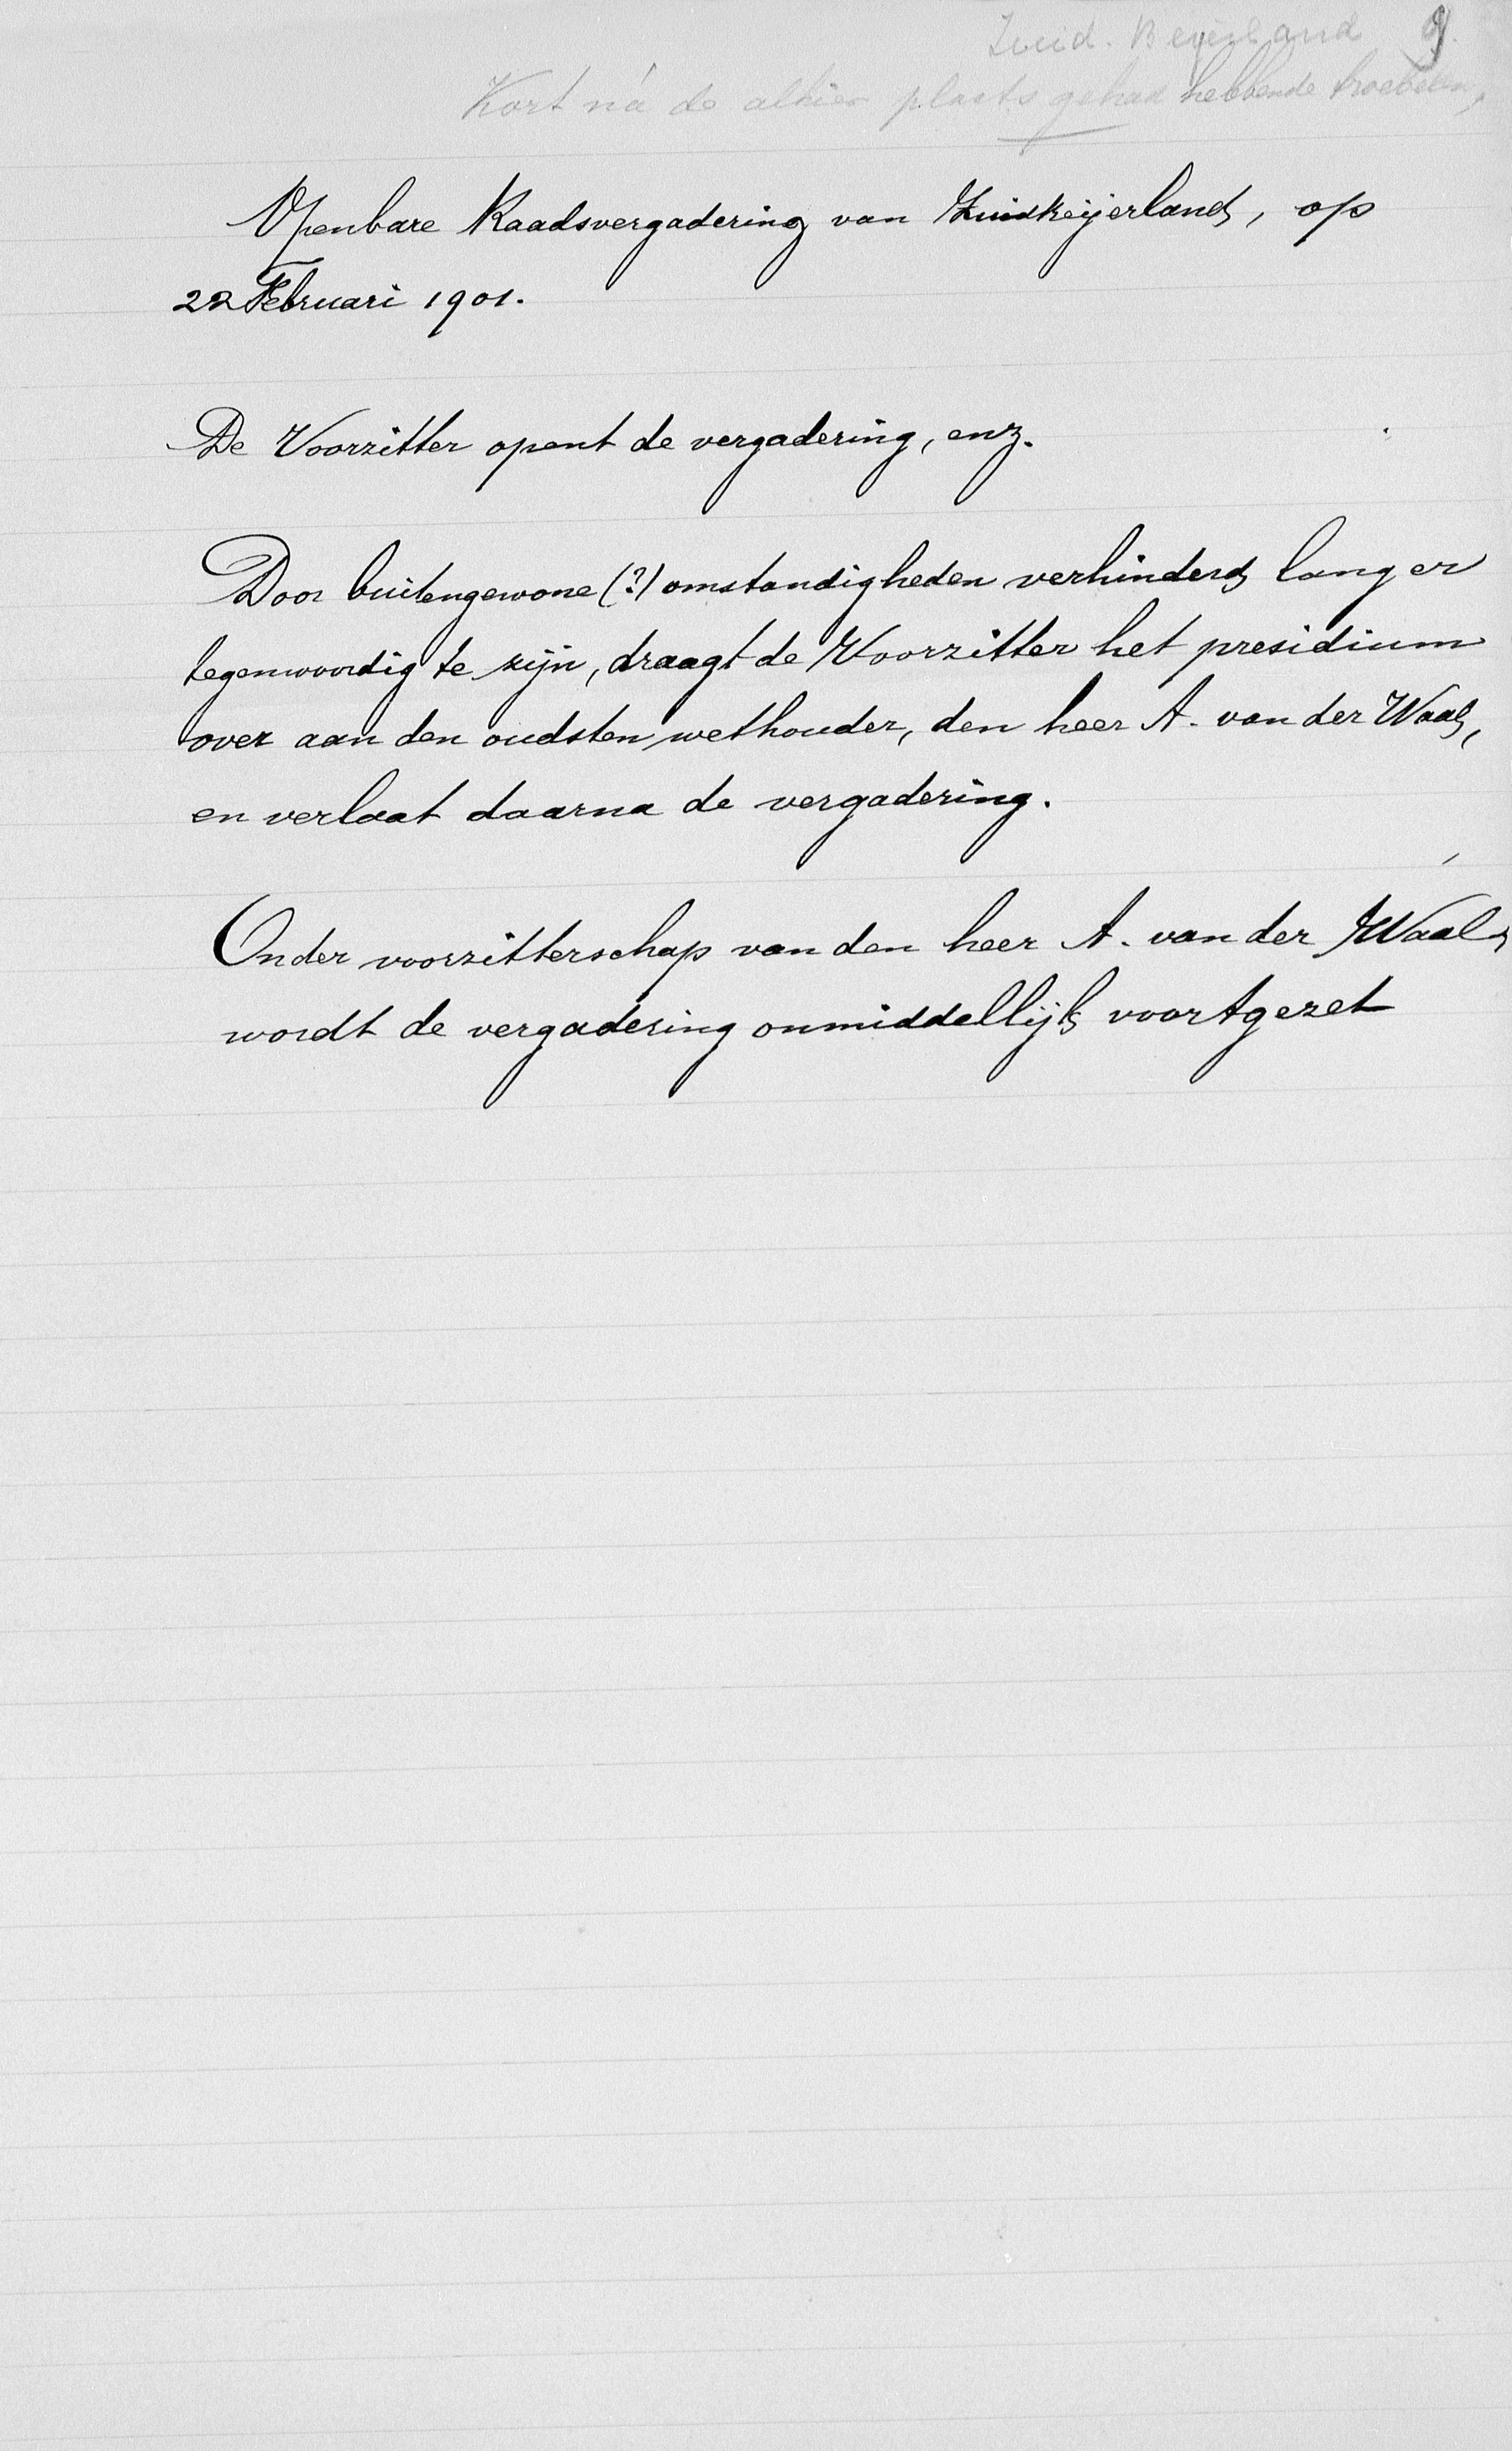 Zuid. Beyerland 9.
Kort ná de alhier plaats gehad hebbende troebelen,
Openbare Raadsvergadering van Zuidbeijerland, op
22 Februari 1901.
De Voorzitter opent de vergadering, enz.
Door buitengewone (?) omstandigheden verhinderd langer
tegenwoordig te zijn, draagt de Voorzitter het presidium
over aan den oudsten wethouder, den heer A. van der Waal,
en verlaat daarna de vergadering.
Onder voorzitterschap van den heer A. van der Waal
wordt de vergadering onmiddellijk voortgezet